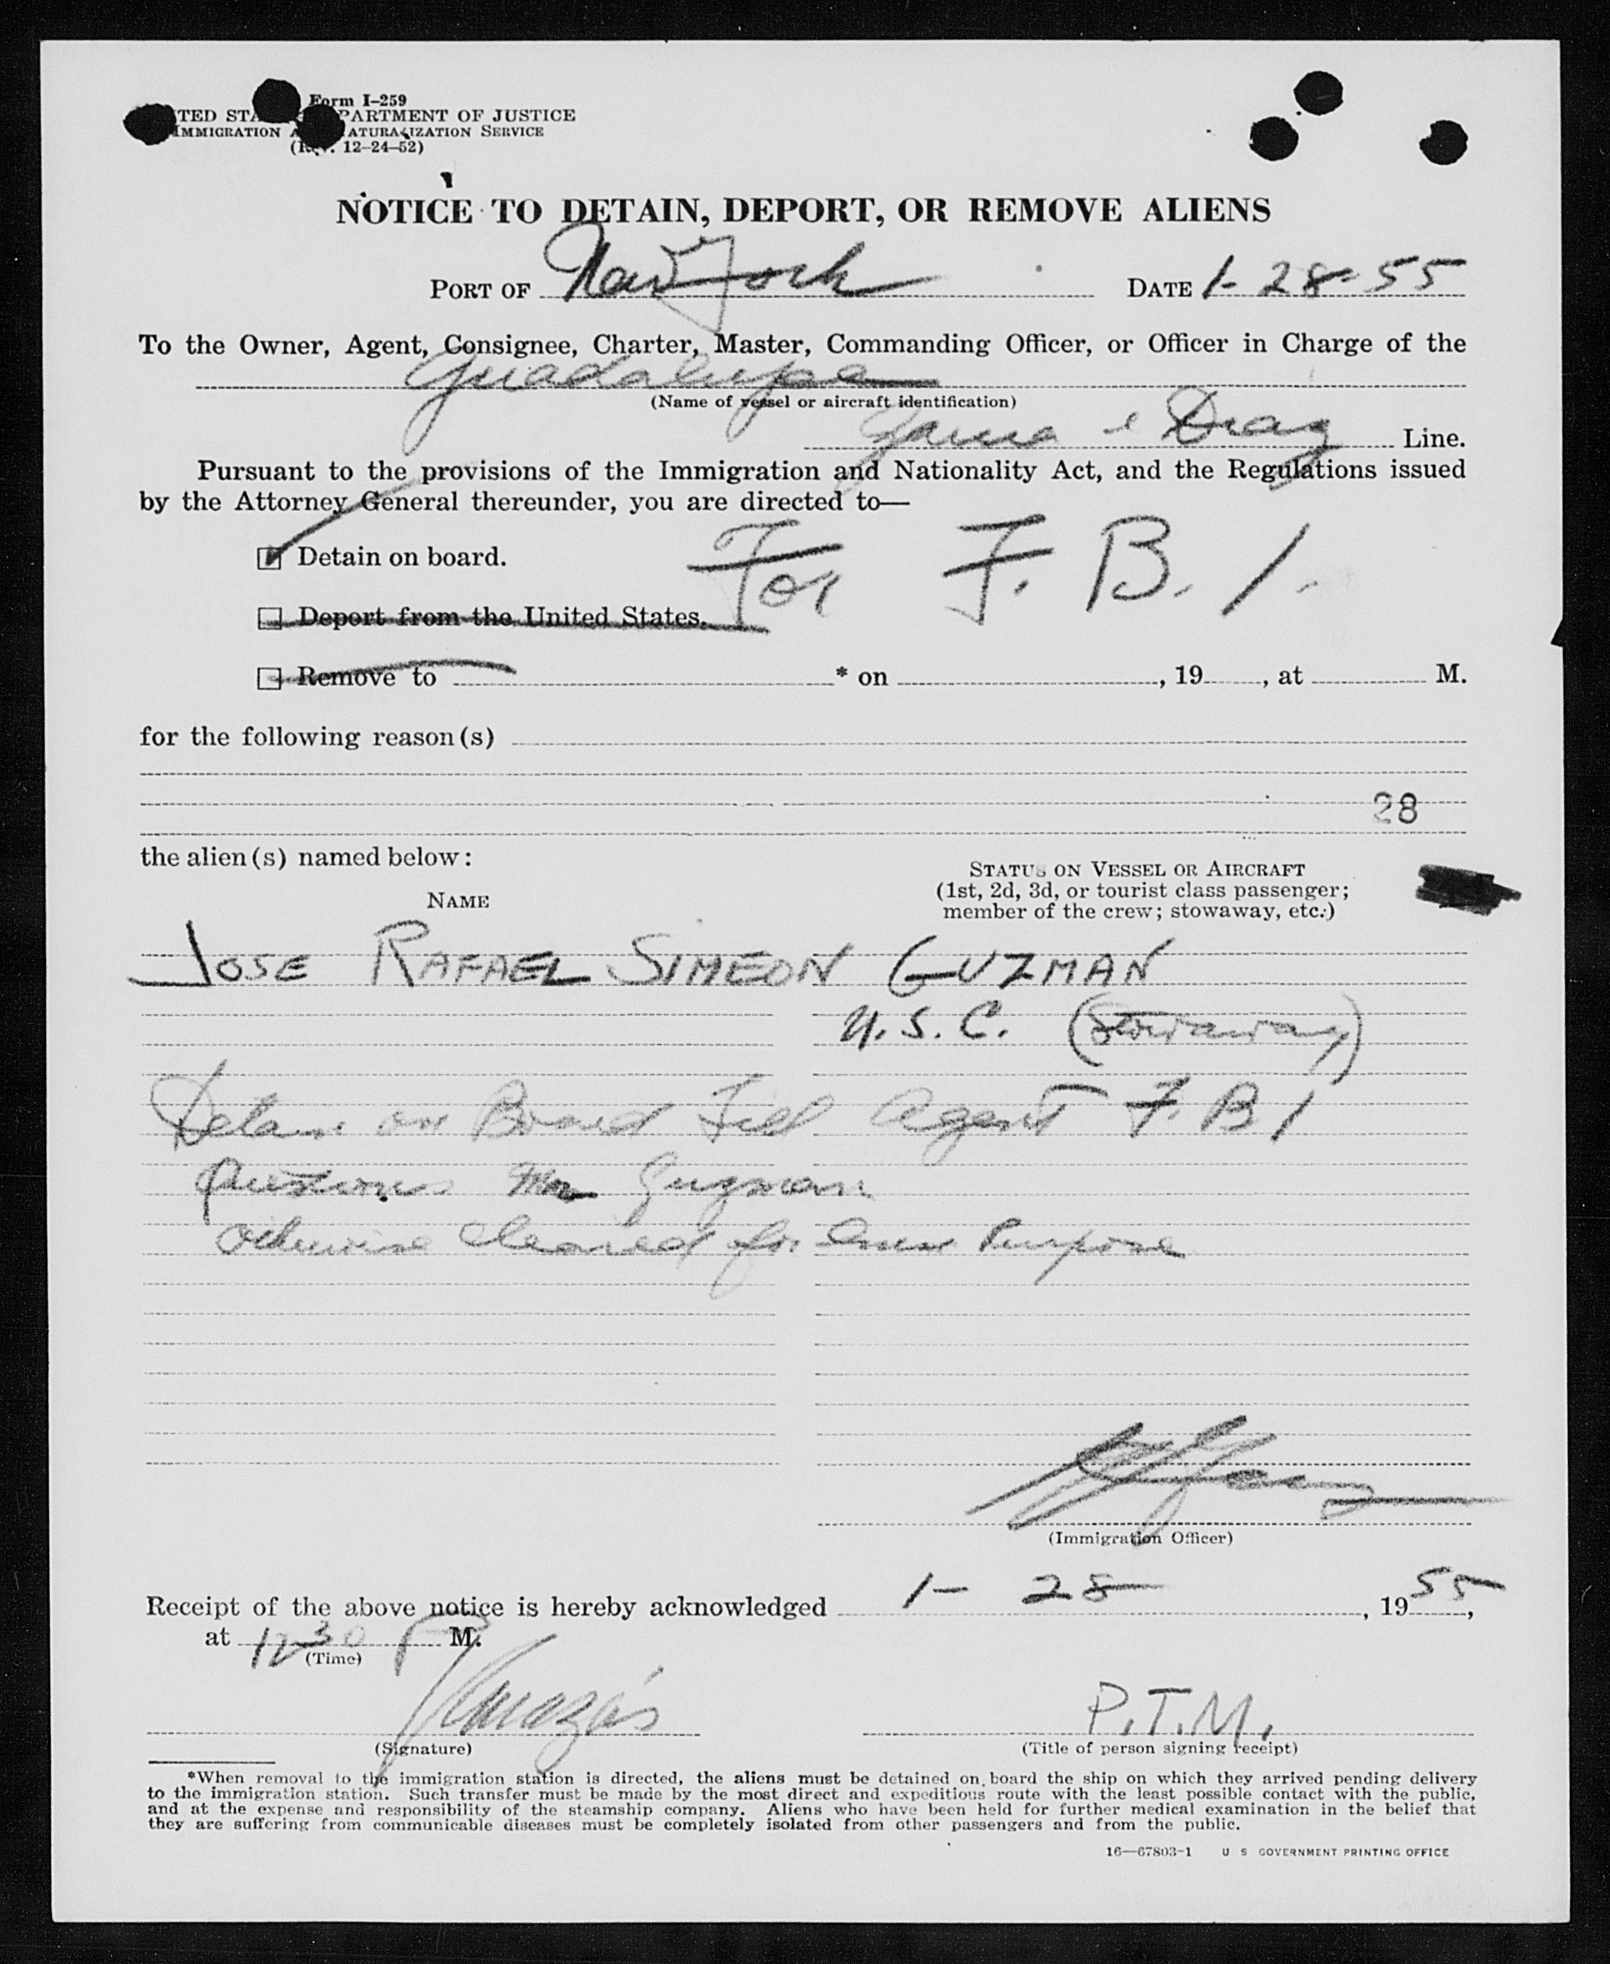 Form I-259
TED STA PARTMENT OF JUSTICE
IMMIGRATION A ATURALIZATION SERVICE
(R V. 12-24-52)
NOTICE TO DETAIN, DEPORT, OR REMOVE ALIENS
PORT OF New York DATE 1-28-55
To the Owner, Agent, Consignee, Charter, Master, Commanding Officer, or Officer in Charge of the
Guadalupe
(Name of vessel or aircraft identification)
Line.
Pursuant to the provisions of the Immigration and Nationality Act, and the Regulations issued
by the Attorney General thereunder, you are directed to—
Detain on board. For F. B. I.
Deport from the United States.
Remove to * on , 19 , at M.
for the following reason(s)
28
the alien(s) named below:
STATUS ON VESSEL OR AIRCRAFT
(1st, 2d, 3d, or tourist class passenger;
member of the crew; stowaway, etc.)
NAME
JOSE RAFAEL SIMEON GUZMAN
U.S.C. (Stowaway)
Detain on Board Till Agent F. B I
Questions Mr Guzman
otherwise cleared for Purpose
(Immigration Officer)
Receipt of the above notice is hereby acknowledged 1-28 , 19 55,
at 1230 P M.
(Time)
P.T.M.
(Signature) (Title of person signing receipt)
*When removal to the immigration station is directed, the aliens must be detained on board the ship on which they arrived pending delivery
to the immigration station. Such transfer must be made by the most direct and expeditious route with the least possible contact with the public,
and at the expense and responsibility of the steamship company. Aliens who have been held for further medical examination in the belief that
they are suffering from communicable diseases must be completely isolated from other passengers and from the public.
16—67803-1 U S GOVERNMENT PRINTING OFFICE